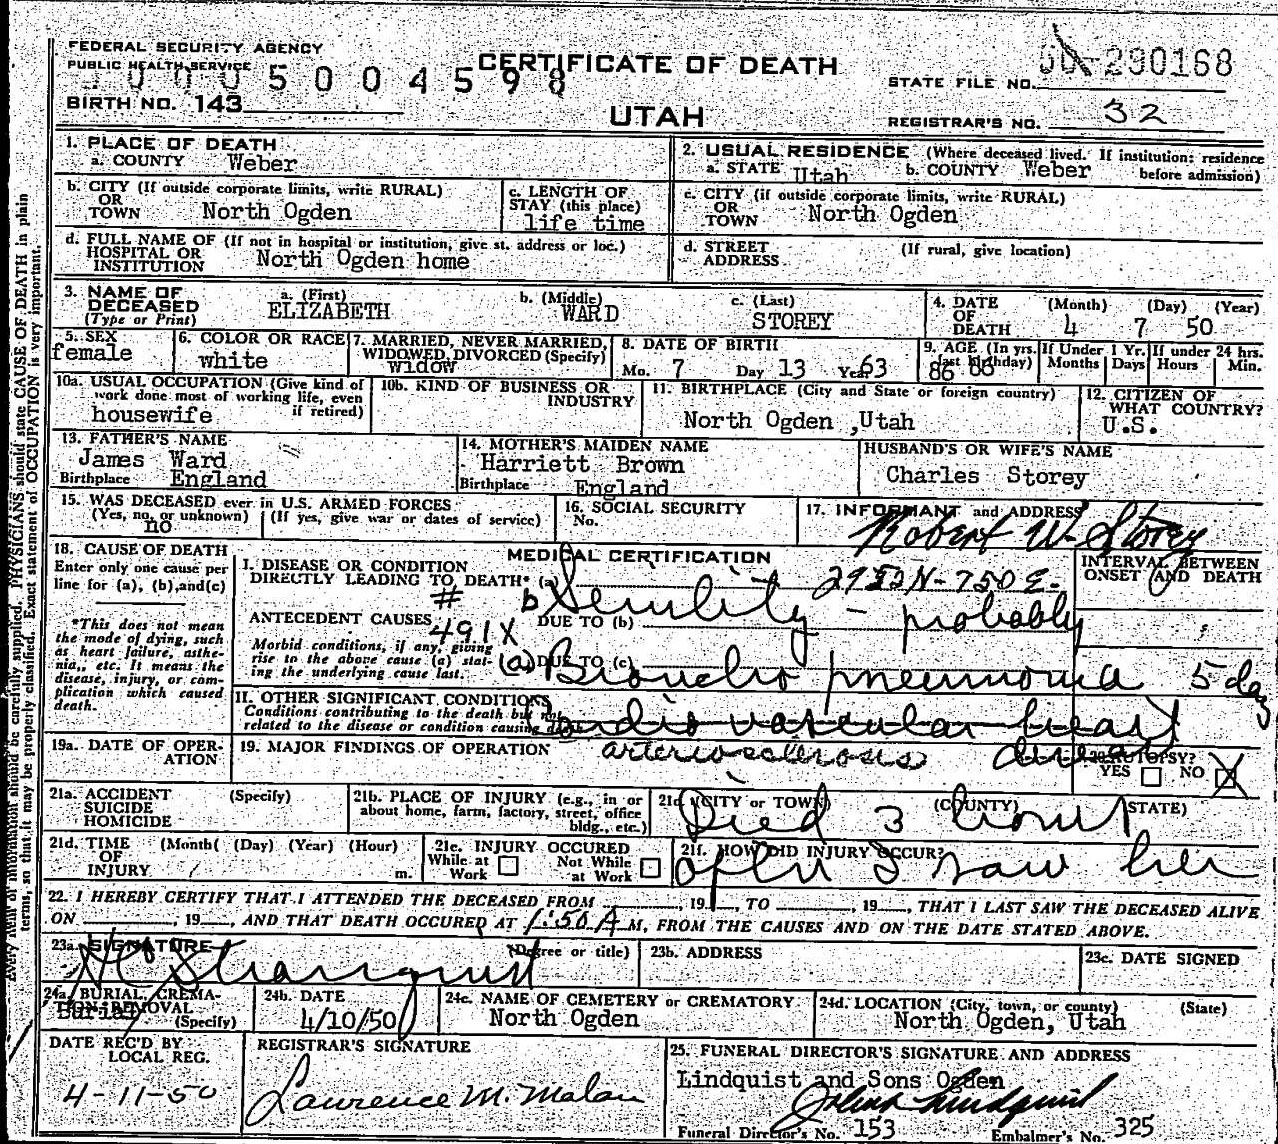 FEDERAL SECURITY AGENCY
PUBLIC HEALTH SERVICE
0005004598
CERTIFICATE OF DEATH
UTAH
STATE FILE NO. 50-290168
BIRTH NO. 143
REGISTRAR'S NO. 32
1. PLACE OF DEATH
a. COUNTY Weber
2. USUAL RESIDENCE (Where deceased lived. If institution: residence before admission)
a. STATE Utah b. COUNTY Weber
b. CITY (If outside corporate limits, write RURAL)
OR TOWN North Ogden
c. LENGTH OF STAY (this place)
life time
c. CITY (if outside corporate limits, write RURAL)
OR TOWN North Ogden
d. FULL NAME OF (If not in hospital or institution, give st. address or loc.)
HOSPITAL OR INSTITUTION North Ogden home
d. STREET ADDRESS (If rural, give location)
3. NAME OF DECEASED (Type or Print)
a. (First) ELIZABETH
b. (Middle) WARD
c. (Last) STOREY
4. DATE OF DEATH (Month) (Day) (Year)
4 7 50
5. SEX female
6. COLOR OR RACE white
7. MARRIED, NEVER MARRIED, WIDOWED, DIVORCED (Specify)
widow
8. DATE OF BIRTH
Mo. 7 Day 13 Year 63
9. AGE (In yrs. last birthday) 86
If Under 1 Yr. Months Days
If under 24 hrs. Hours Min.
10a. USUAL OCCUPATION (Give kind of work done most of working life, even if retired)
housewife
10b. KIND OF BUSINESS OR INDUSTRY
11. BIRTHPLACE (City and State or foreign country)
North Ogden ,Utah
12. CITIZEN OF WHAT COUNTRY?
U.S.
13. FATHER'S NAME
James Ward
Birthplace England
14. MOTHER'S MAIDEN NAME
Harriett Brown
Birthplace England
HUSBAND'S OR WIFE'S NAME
Charles Storey
15. WAS DECEASED ever in U.S. ARMED FORCES
(Yes, no, or unknown) (If yes, give war or dates of service)
no
16. SOCIAL SECURITY No.
17. INFORMANT and ADDRESS
Robert W. Storey
2952 N-750 E-
18. CAUSE OF DEATH
Enter only one cause per line for (a), (b), and (c)
*This does not mean the mode of dying, such as heart failure, asthenia, etc. It means the disease, injury, or complication which caused death.
MEDICAL CERTIFICATION
INTERVAL BETWEEN ONSET AND DEATH
I. DISEASE OR CONDITION DIRECTLY LEADING TO DEATH* (a)
# b Senility - probably
ANTECEDENT CAUSES DUE TO (b)
491X
Morbid conditions, if any, giving rise to the above cause (a) stating the underlying cause last.
DUE TO (c)
(a) Broncho pneumonia 5 days
II. OTHER SIGNIFICANT CONDITIONS
Conditions contributing to the death but not related to the disease or condition causing death.
Cardio vascular heart disease
arteriosclerosis
19a. DATE OF OPERATION
19. MAJOR FINDINGS OF OPERATION
20. AUTOPSY?
YES NO X
21a. ACCIDENT SUICIDE HOMICIDE (Specify)
21b. PLACE OF INJURY (e.g., in or about home, farm, factory, street, office bldg., etc.)
21c. (CITY or TOWN) (COUNTY) (STATE)
Died 3 hours
21d. TIME OF INJURY (Month) (Day) (Year) (Hour) m.
21e. INJURY OCCURED
While at Work Not While at Work
21f. HOW DID INJURY OCCUR?
after I saw her
22. I HEREBY CERTIFY THAT I ATTENDED THE DECEASED FROM , 19 , TO , 19 , THAT I LAST SAW THE DECEASED ALIVE
ON , 19 , AND THAT DEATH OCCURED AT 1:50 A M, FROM THE CAUSES AND ON THE DATE STATED ABOVE.
23a. SIGNATURE (Degree or title)
Stranquist
23b. ADDRESS
23c. DATE SIGNED
24a. BURIAL, CREMATION, REMOVAL (Specify)
Burial
24b. DATE
4/10/50
24c. NAME OF CEMETERY or CREMATORY
North Ogden
24d. LOCATION (City, town, or county) (State)
North Ogden, Utah
DATE REC'D BY LOCAL REG.
4-11-50
REGISTRAR'S SIGNATURE
Lawrence M. Malan
25. FUNERAL DIRECTOR'S SIGNATURE AND ADDRESS
Lindquist and Sons Ogden
Lindquist
Funeral Director's No. 153 Embalmer's No. 325
PHYSICIANS should state CAUSE OF DEATH in plain
terms, so that it may be properly classified. Exact statement of OCCUPATION is very important.